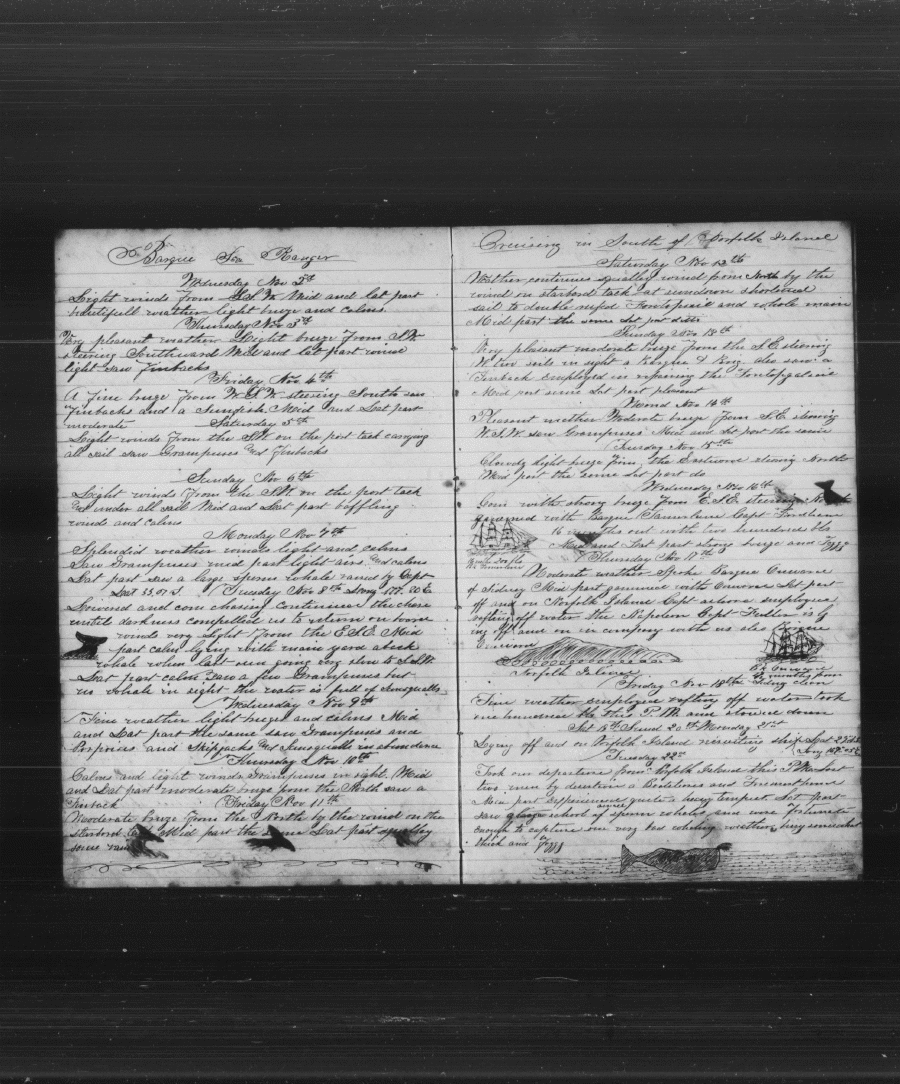 Barque Sea Ranger
Wednesday Nov 2d
Light winds from S.S.W. Mid and lat part
beautifull weather light breeze and calms
Thursday Nov 3th
Very pleasant weather Light breeze from S.W.
steering Southward Mid and lat part wind
light saw Finbacks
Friday Nov 4th
A fine breeze from W.S.W. steering South saw
Finbacks and a Sunfish Mid and Lat part
moderate Saturday 5th
Light winds from the S.W. on the port tack carrying
all sail saw Grampuses and Finbacks
Sunday Nov 6th
Light winds from the S.W. on the port tack
and under all sail Mid and Lat part baffling
winds and calms
Monday Nov 7th
Splendid weather winds light and calms
Saw Grampuses mid part light airs and calms
Lat part saw a large sperm whale raised by Capt
Lat 33.07 S. Tuesday Nov 8th Long 177. 20 E.
Lowered and com chasing continued the chase
until darkness compelled us to return on board
winds very light from the E.S.E. Mid
part calm lying with main yard aback
whale when last seen going very slow to S.S.W.
Lat part calm saw a few Grampuses but
no whale in sight the water is full of
Wednesday Nov 9th
Fine weather light breeze and calms Mid
and Lat part the same saw Grampuses and
Porpoises and Skipjacks and in abundance
Thursday Nov 10th
Calms and light winds Grampuses in sight. Mid
and Lat part moderate breeze from the North saw a
Finback Friday Nov 11th
Moderate breeze from the North by the wind on the
starbord tack Mid part the same Lat part squally
some rain
Cruising in South of Norfolk Island
Saturday Nov 12th
Weather continues squally wind from North by the
wind on starbord tack at sundown shortened
sail to double reefed Foretopsail and whole main
Mid part the same Lat part ditto
Sunday Nov 13th
Very pleasant moderate breeze from the S.E. steering
W. two sails in sight a Barque & Brig also saw a
Finback employed in repairing the Foretopgalsail
Mid part same Lat part pleasant
Monday Nov 14th
Pleasant weather Moderate breeze from S.E. steering
W.S.W. saw Grampuses Mid and Lat part the same
Tuesday Nov 15th
Cloudy light breeze from the Eastward steering North
Mid part the same Lat part do
Wednesday Nov 16th
Com with strong breeze from E.S.E. steering
gammed with Barque Capt
16 months out with two hundred bbls
Mid and Lat part strong breeze and Foggy
Thursday Nov 17th
Moderate weather Spoke Barque Onward
of Sidney Mid part gammed with Onward Lat part
off and on Norfolk Island Capt ashore employed
rafting off water the Napoleon Capt is ly
ing off and on in company with us also Barque
Onward
Norfolk Island
Friday Nov 18th
Fine weather employed rafting off water took
one hundred bbs this P.M. and stowed down
Sat 19th Sund 20th Monday 21st
Laying off and on Norfolk Island
Tuesday 22d
Took our departure from Norfolk Island this P.M. Lost
two men by desertion a Boatsteerer and
Mid part experienced quite a heavy tempest Lat part
saw a large school of sperm whales and were fortunate
enough to capture one very bad whaling weather being somewhat
thick and Foggy